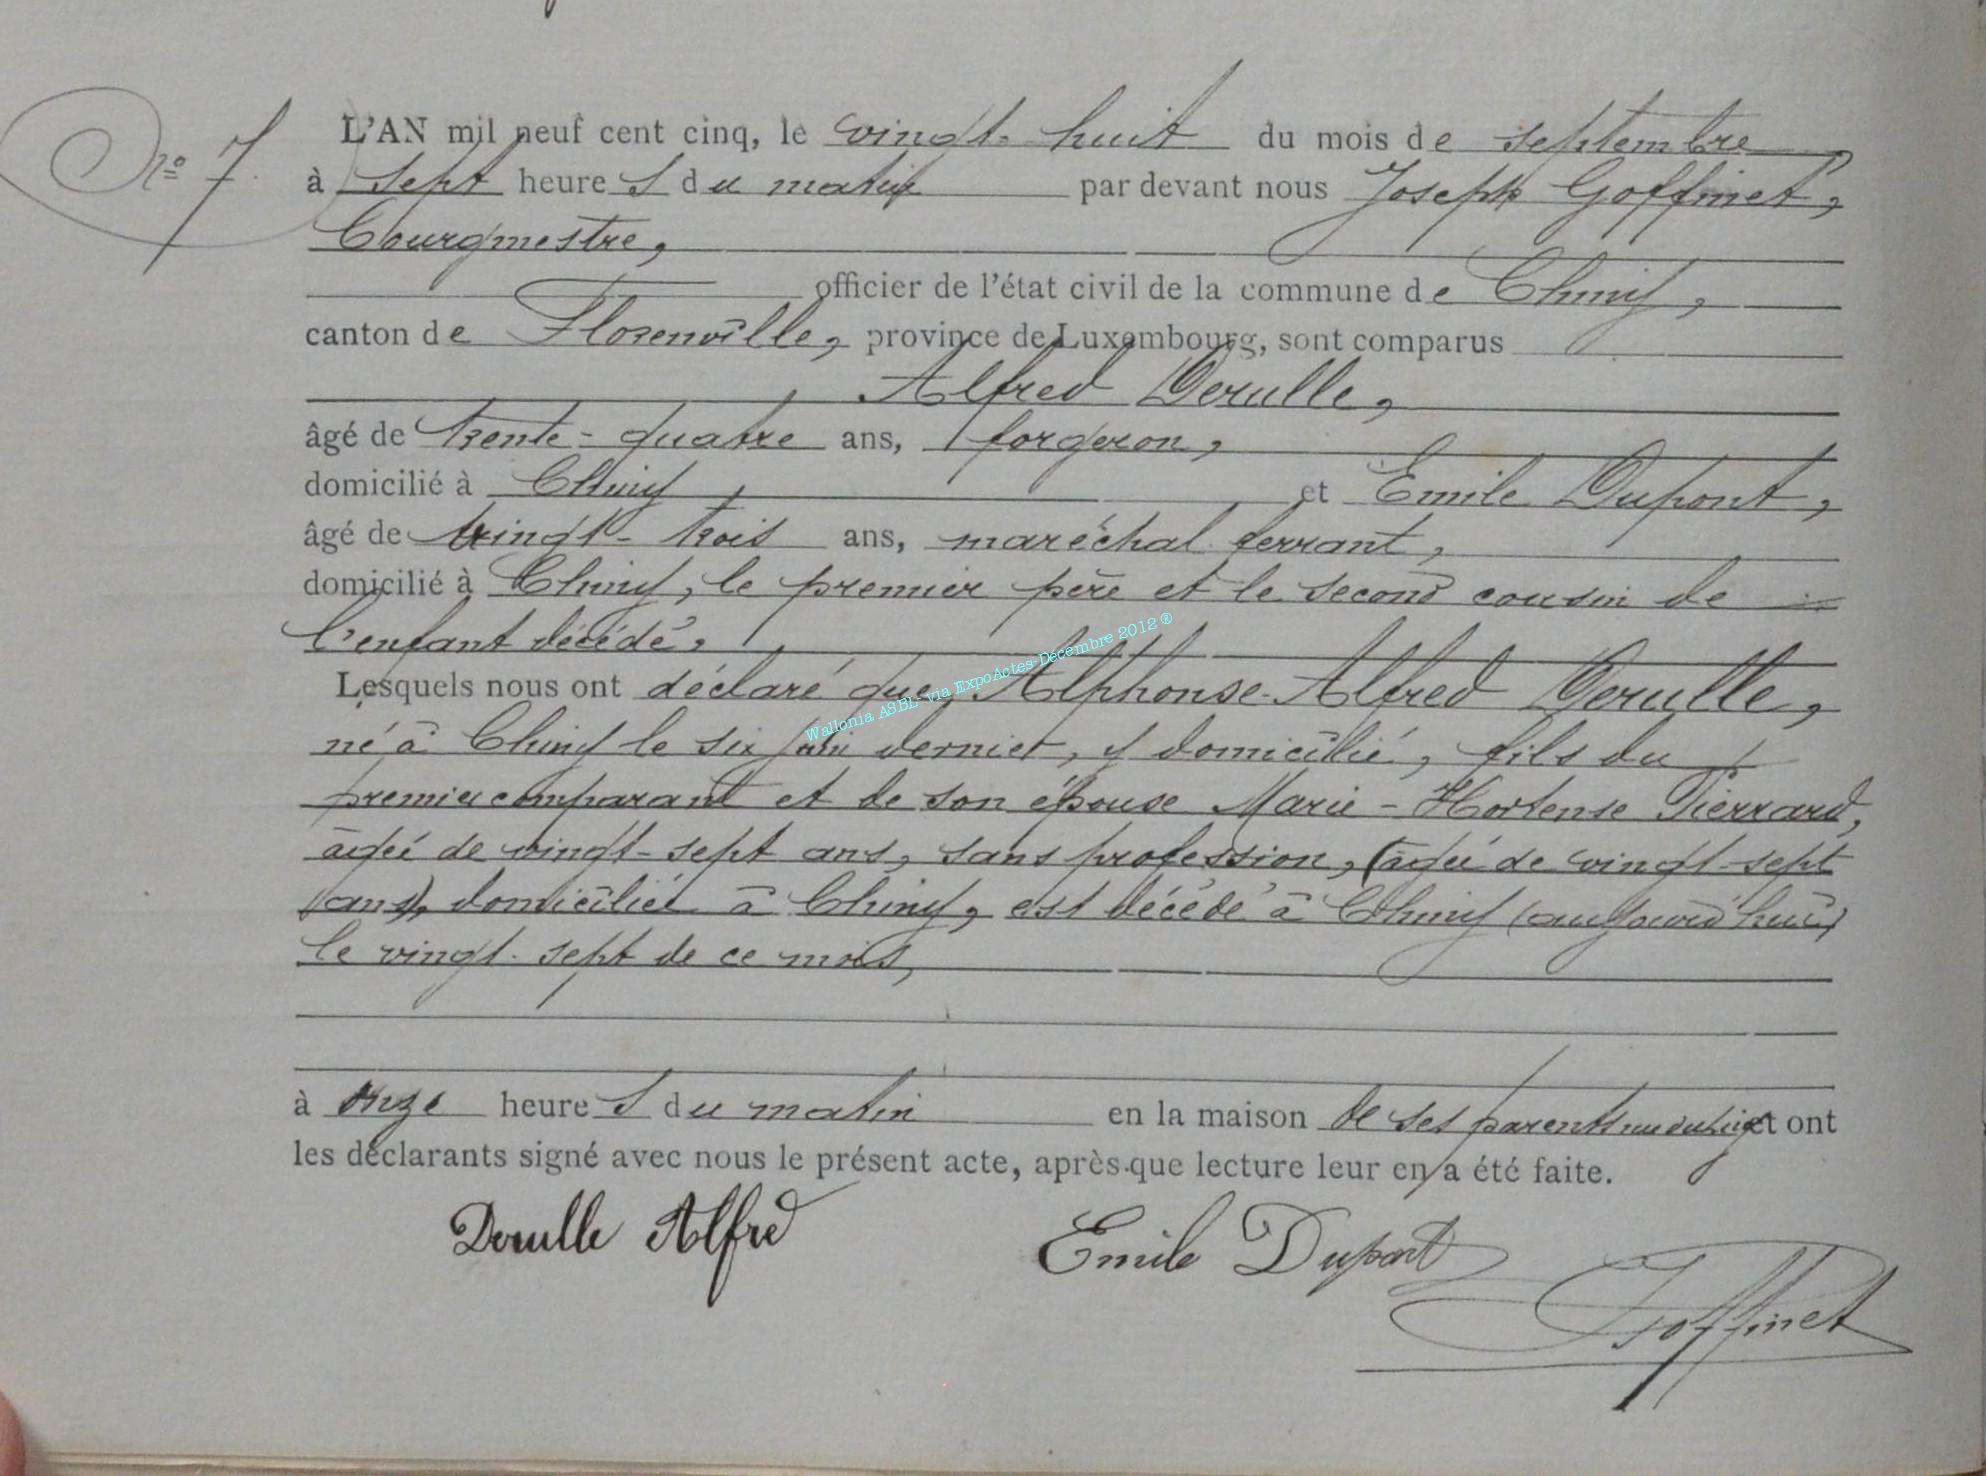 Nº 7.
L'AN mil neuf cent cinq, le vingt-huit du mois de septembre,
à sept heures du matin par devant nous Joseph Goffinet,
Bourgmestre,
officier de l'état civil de la commune de Chiny,
canton de Florenville, province de Luxembourg, sont comparus
Alfred Derulle,
âgé de trente-quatre ans, forgeron,
domicilié à Chiny et Emile Dupont,
âgé de vingt-trois ans, maréchal ferrant,
domicilié à Chiny, le premier père et le second cousin de
l'enfant décédé,
Lesquels nous ont déclaré que Alphonse-Alfred Derulle,
né à Chiny le six juin dernier, y domicilié, fils du
premier comparant et de son épouse Marie-Hortense Pierrard,
âgée de vingt-sept ans, sans profession, (âgée de vingt-sept
ans), domiciliée à Chiny, est décédé à Chiny (aujourd'hui)
le vingt-sept de ce mois,
à onze heures du matin en la maison de ses parents et ont
les déclarants signé avec nous le présent acte, après que lecture leur en a été faite.
Derulle Alfred
Emile Dupont
Goffinet
Wallonia ASBL - via ExpoActes-Décembre 2012 ®